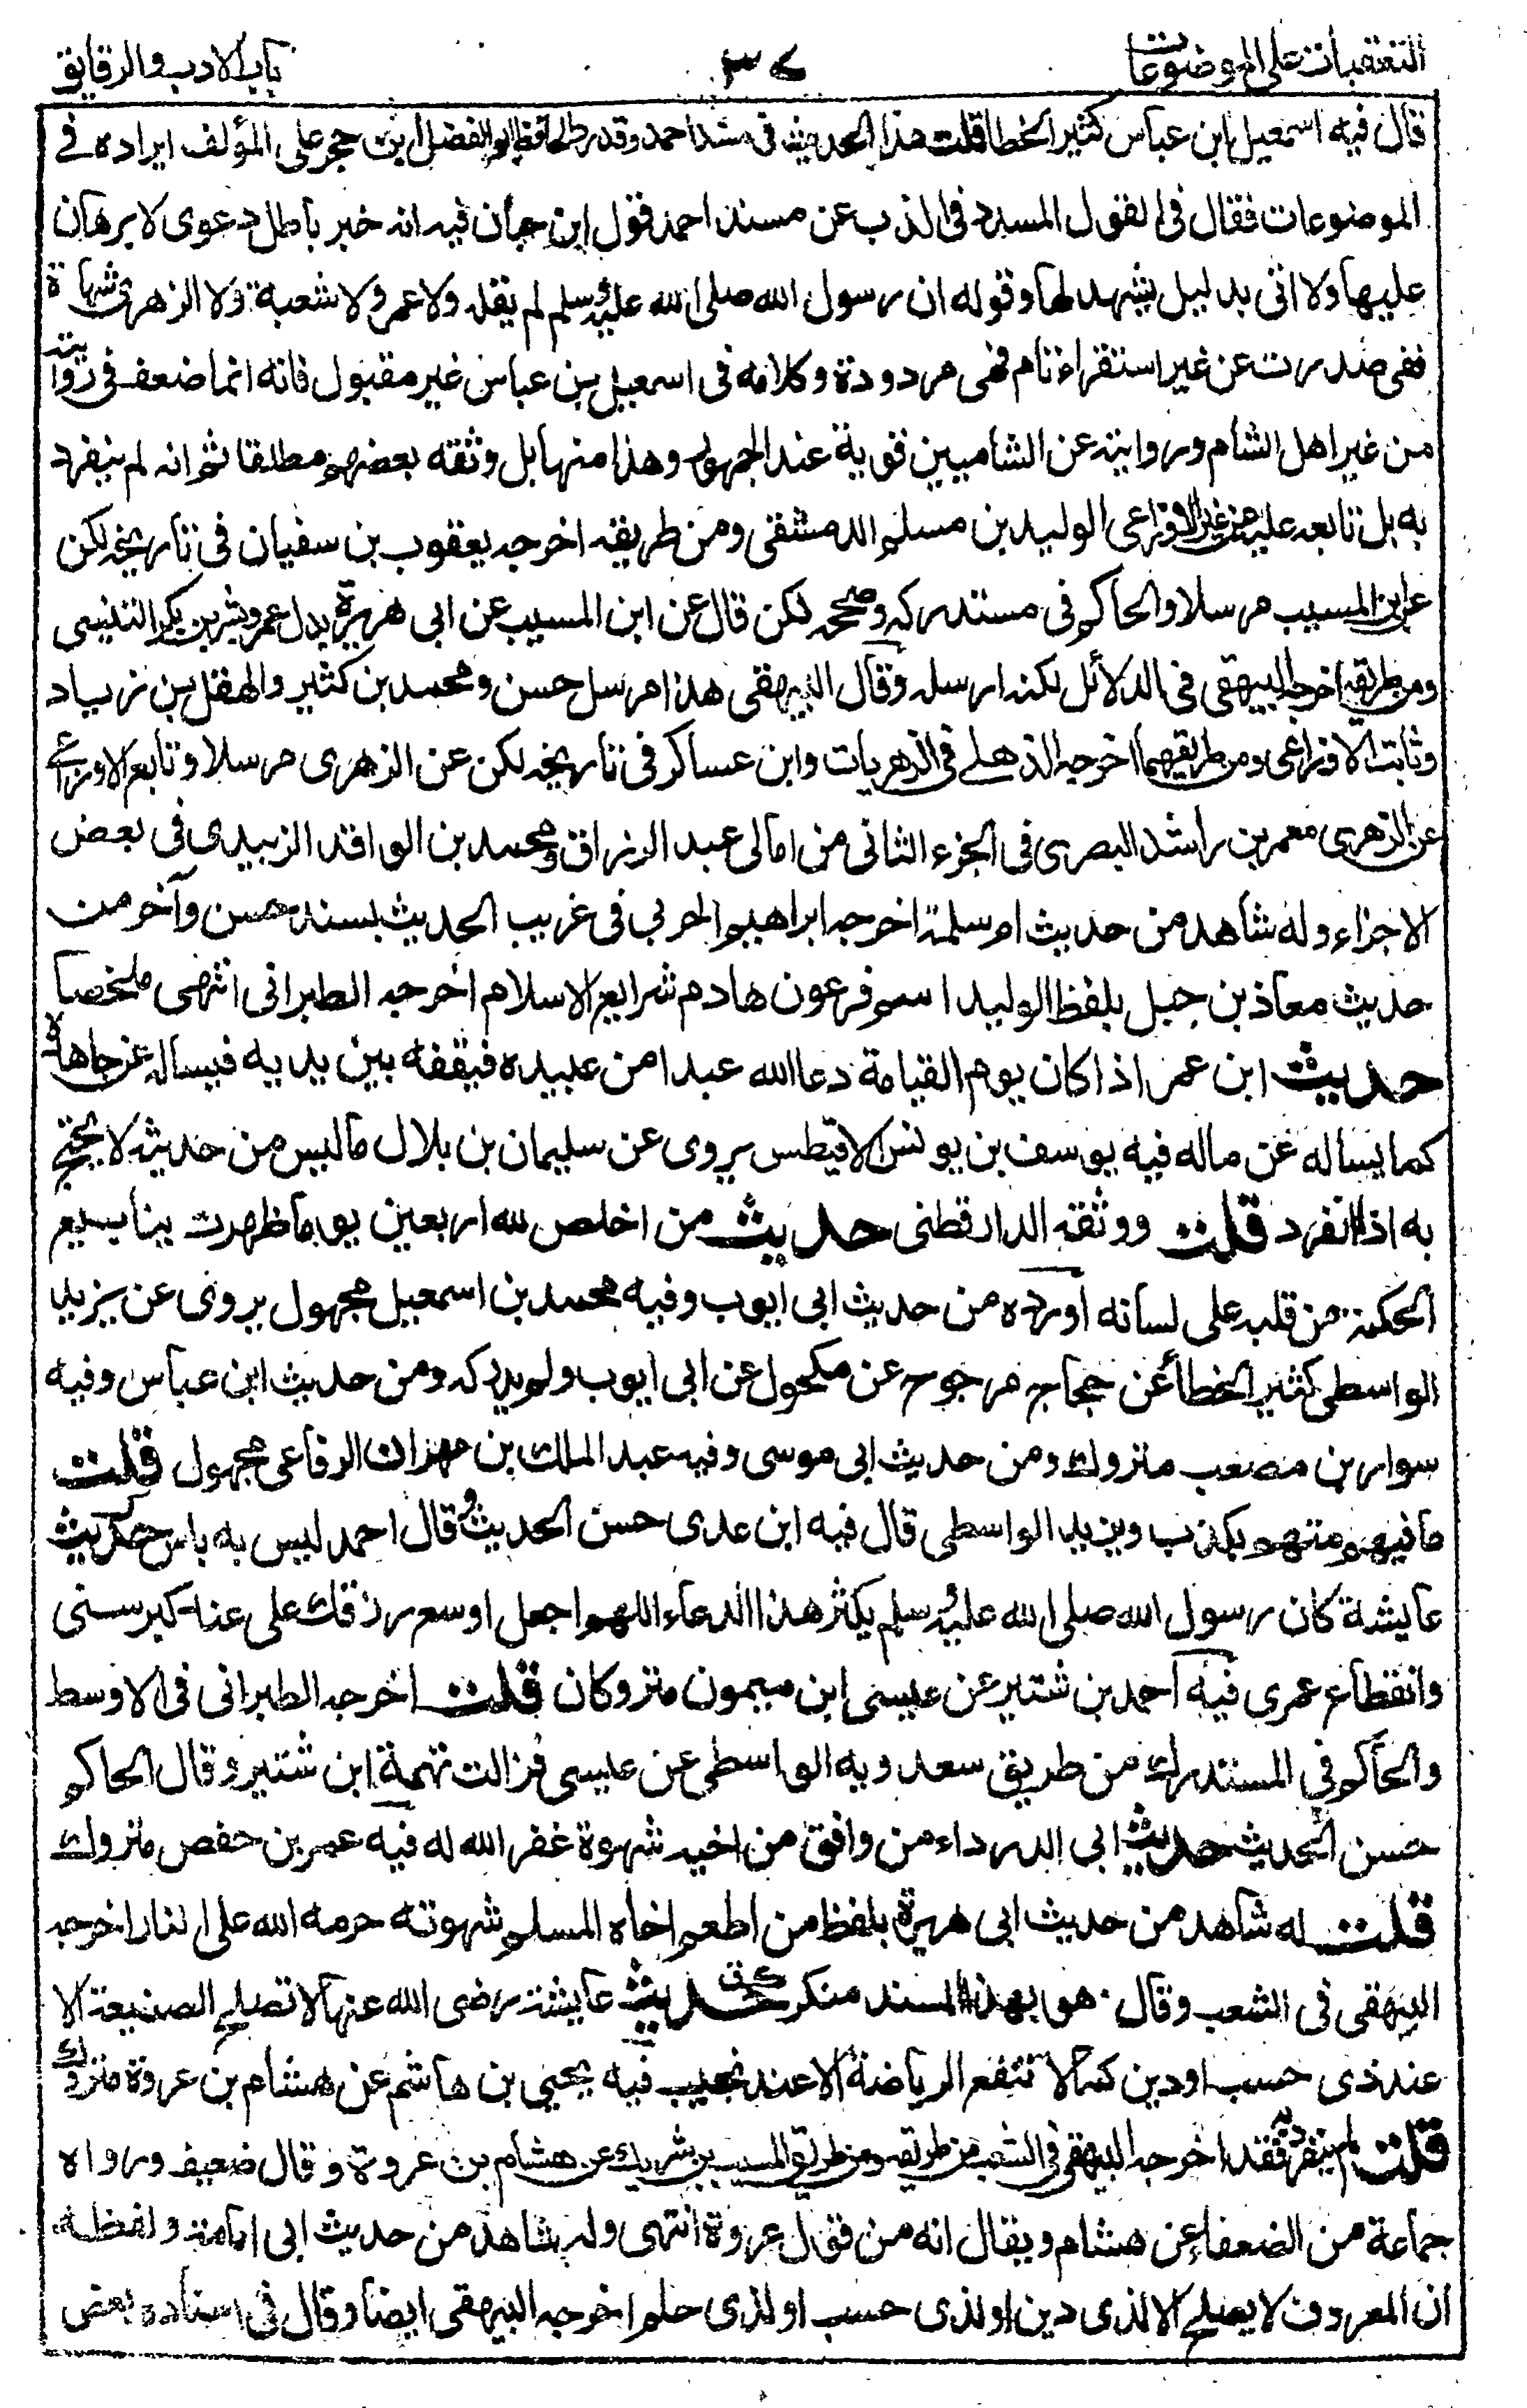 التعقبات على الموضوعات
٣٧
باب الادب والرقايق
قال فيه اسمعيل ابن عباس كثير الخطا قلت هذا الحديث في مسند احمد وقد رد الحافظ ابو الفضل ابن حجر على المؤلف ايراده في
الموضوعات فقال في القول المسدد في الذب عن مسند احمد فقول ابن حبان فيه انه خبر باطل دعوى لا برهان
عليها ولا اتى بدليل يشهد لها وقوله ان رسول الله صلى الله عليه وسلم لم يقله ولا عمر ولا شعبة ولا الزهري شهادة
نفى صدرت عن غير استقراء تام فهى مردودة وكلامه فى اسمعيل بن عباس غير مقبول فانه انما ضعف فى روايته
من غير اهل الشام وروايته عن الشاميين قوية عند الجمهور وهذا منها بل وثقه بعضهم مطلقا ثم انه لم ينفرد
به بل تابعه عليه من غير الاوزاعى الوليد بن مسلم الدمشقى ومن طريقه اخرجه يعقوب بن سفيان فى تاريخه لكن
عن ابن المسيب مرسلا والحاكم فى مستدركه وصححه لكن قال عن ابن المسيب عن ابى هريرة بدل عمر وبشر بن بكر التنيسى
ومن طريقه اخرجه البيهقى فى الدلائل لكنه ارسله وقال البيهقى هذا مرسل حسن ومحمد بن كثير والهقل بن زياد
وثابت الاوزاعى ومن طريقهما اخرجه الذهلى فى الزهريات وابن عساكر فى تاريخه لكن عن الزهرى مرسلا وتابع الاوزاعى
عن الزهرى معمر بن راشد البصرى فى الجزء الثانى من امالى عبد الرزاق ومحمد بن الواقد الزبيدى فى بعض
الاجزاء وله شاهد من حديث ام سلمة اخرجه ابراهيم الحربى فى غريب الحديث بسند حسن وآخر من
حديث معاذ بن جبل بلفظ الوليد اسم فرعون هادم شرايع الاسلام اخرجه الطبرانى انتهى ملخصا
حديث ابن عمر اذا كان يوم القيامة دعا الله عبدا من عبيده فيقفه بين يديه فيساله عن جاهه
كما يساله عن ماله فيه يوسف بن يونس الافيطس يروى عن سليمان بن بلال ما ليس من حديثه لا يحتج
به اذا انفرد قلت ووثقه الدارقطنى حديث من اخلص لله اربعين يوما ظهرت ينابيع
الحكمة من قلبه على لسانه اورده من حديث ابى ايوب وفيه محمد بن اسمعيل مجهول يروى عن يزيد
الواسطى كثير الخطأ عن حجاج مرجوح عن مكحول عن ابى ايوب ولم يدركه ومن حديث ابن عباس وفيه
سوار بن مصعب متروك ومن حديث ابى موسى وفيه عبد الملك بن مهران الرفاعى مجهول قلت
ما فيهم متهم بكذب ويزيد الواسطى قال فيه ابن عدى حسن الحديث وقال احمد ليس به باس حديث
عايشة كان رسول الله صلى الله عليه وسلم يكثر هذا الدعاء اللهم اجعل اوسع رزقك على عند كبر سنى
وانقطاع عمرى فيه احمد بن شتير عن عيسى ابن ميمون متروكان قلت اخرجه الطبرانى فى الاوسط
والحاكم فى المستدرك من طريق سعدويه الواسطى عن عيسى فزالت تهمة ابن شتير وقال الحاكم
حسن الحديث حديث ابى الدرداء من وافق من اخيه شهوة غفر الله له فيه عمر بن حفص متروك
قلت له شاهد من حديث ابى هريرة بلفظ من اطعم اخاه المسلم شهوته حرمه الله على النار اخرجه
البيهقى فى الشعب وقال هو بهذا السند منكر حديث عايشة رضى الله عنها لا تصلح الصنيعة الا
عند ذى حسب او دين كما لا تنفع الرياضة الا عند نجيب فيه يحيى بن هاشم عن هشام بن عروة متروك
قلت لم ينفرد به فقد اخرجه البيهقى فى الشعب من طريقه ومن طريق المسيب بن شريك عن هشام بن عروة وقال ضعيف ورواه
جماعة من الضعفاء عن هشام ويقال انه من قول عروة انتهى وله شاهد من حديث ابى امامة ولفظه
ان المعروف لا يصلح الا لذى دين او لذى حسب او لذى حلم اخرجه البيهقى ايضا وقال فى اسناده بعض